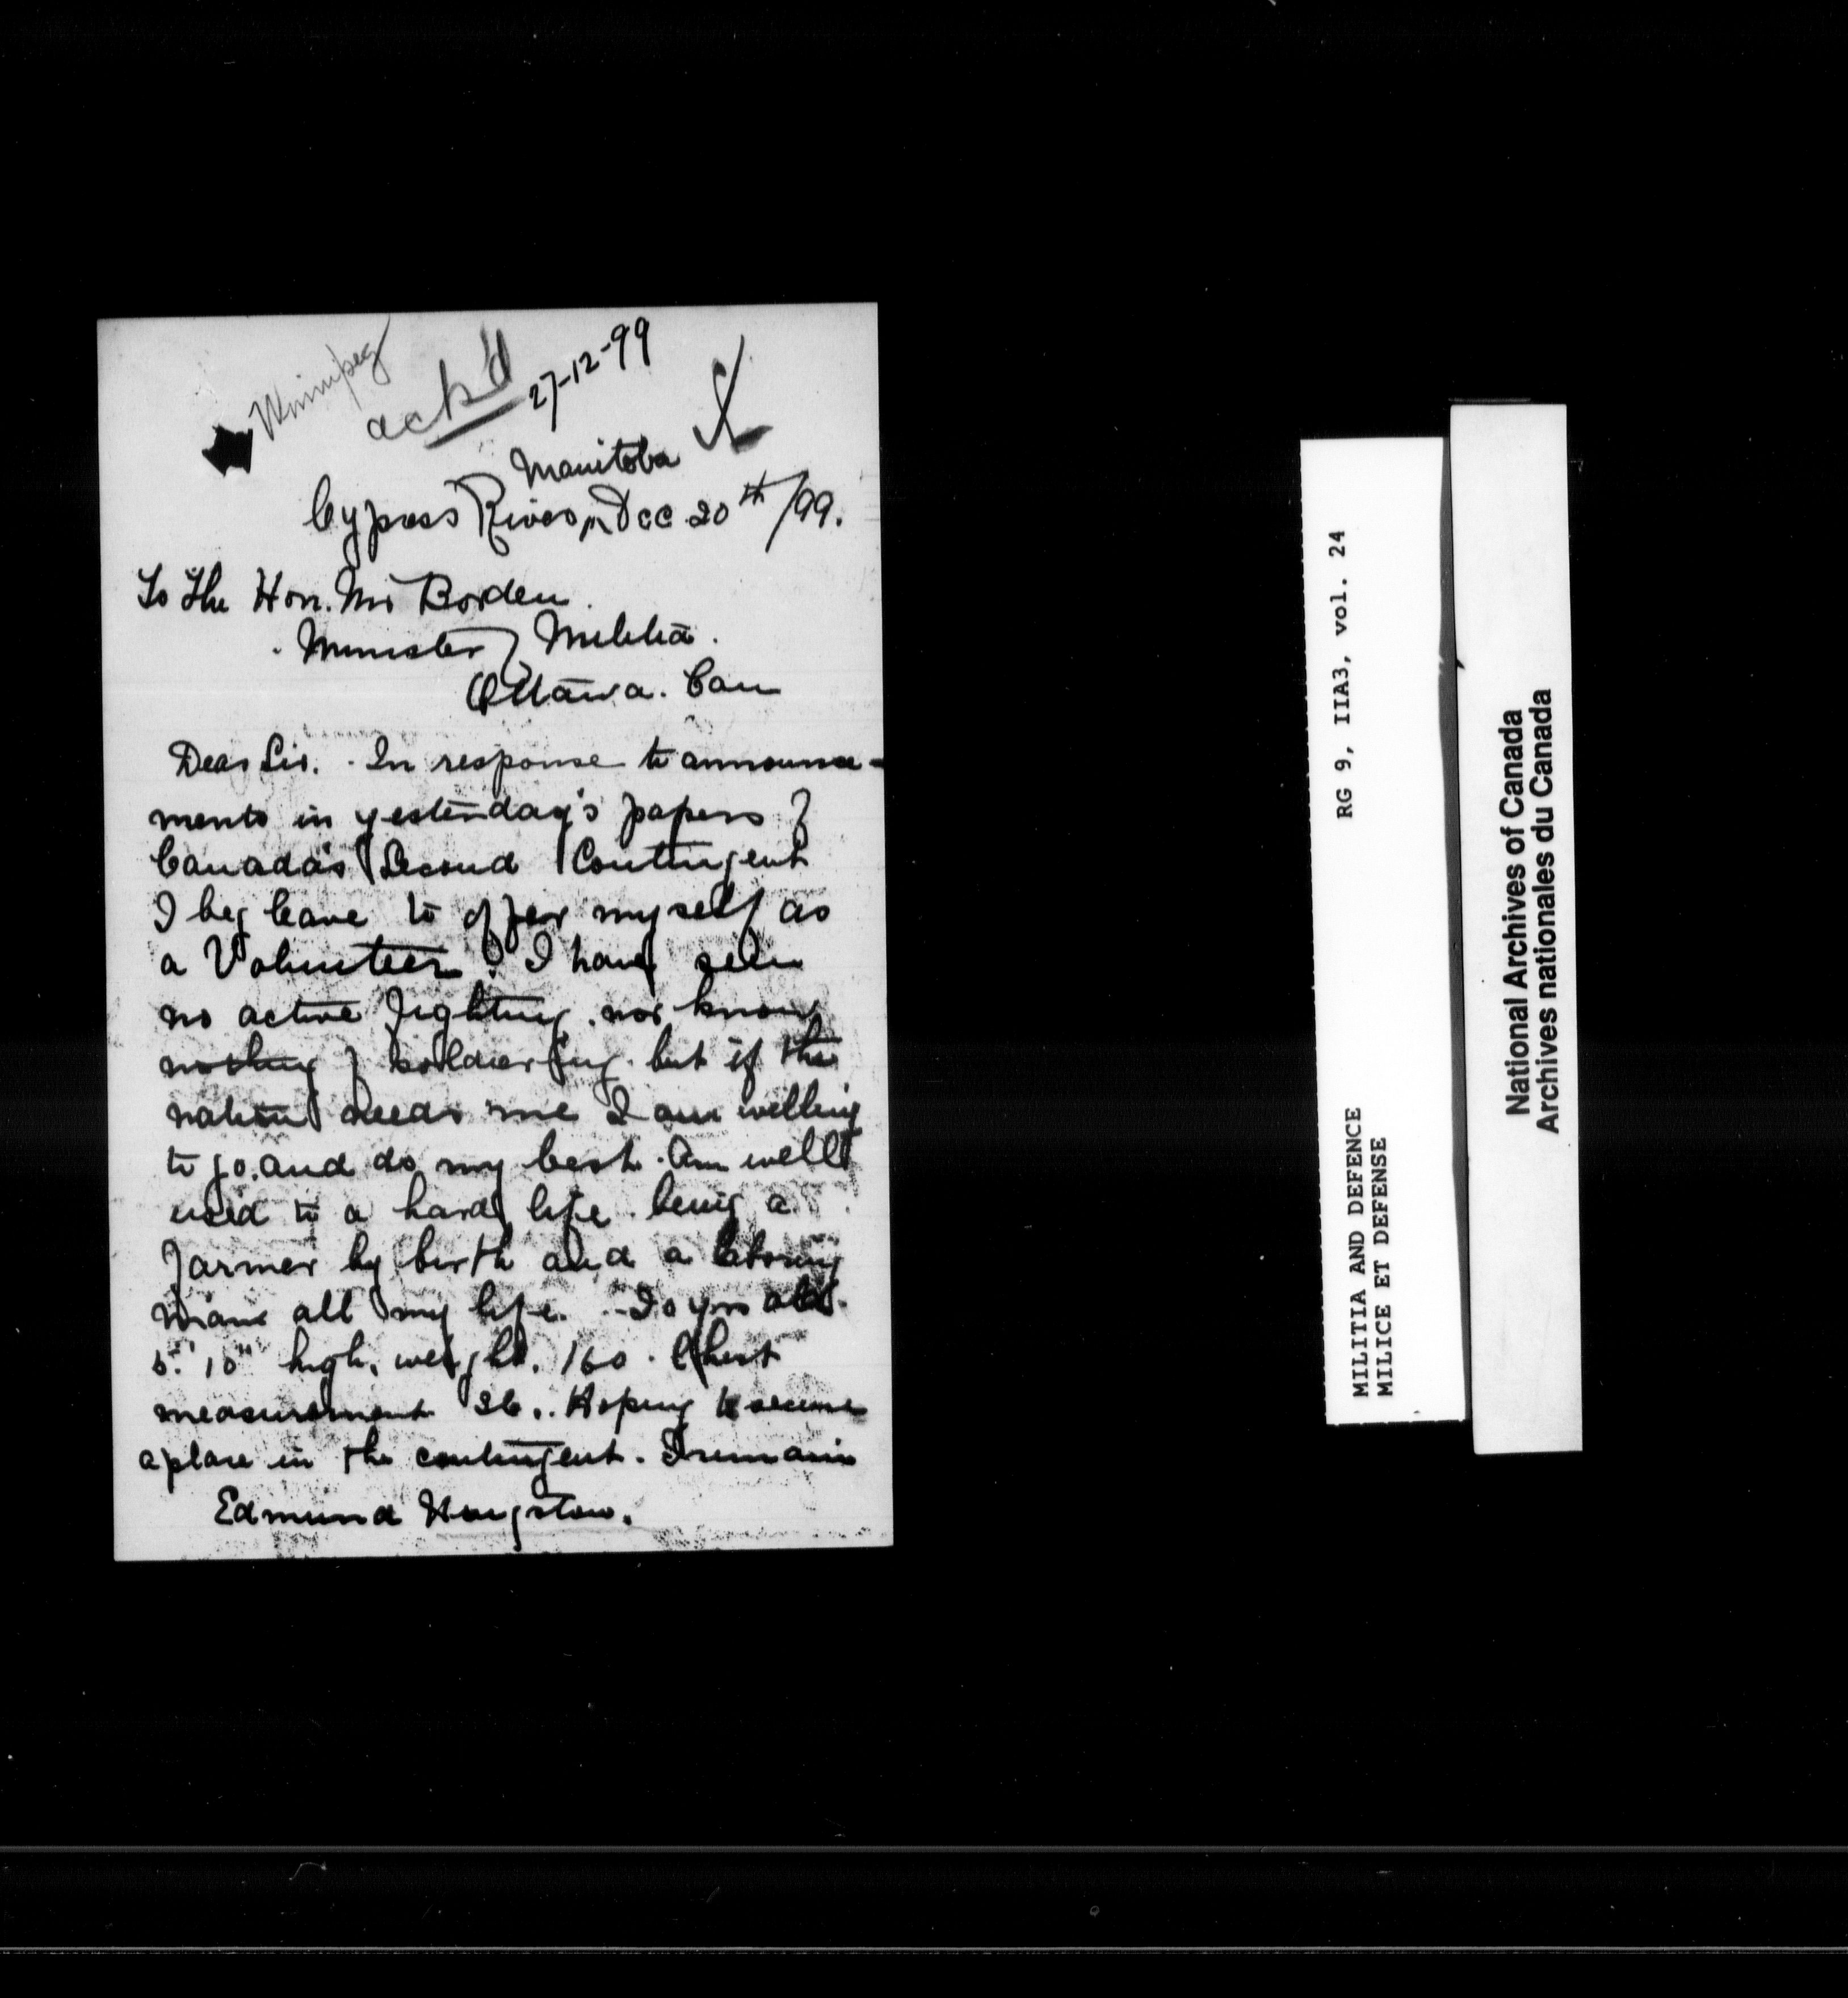 Winnipeg
ack'd 27-12-99
Manitoba
Cypress River, Dec 20th/99.
To The Hon. Mr Borden.
Minister of Militia.
Ottawa. Can
Dear Sir. - In response to announce-
ments in yesterday's papers of
Canada's Second Contingent
I beg leave to offer myself as
a Volunteer. I have seen
no active fighting. nor know
nothing of soldiering. but if the
nation needs me I am willing
to go. and do my best. Am well
used to a hard life. being a
farmer by birth and a laboring
man all my life. yrs old.
5' 10" high. weight. 160. Chest
measurement 36.. Hoping to secure
a place in the contingent. I remain
Edmund
RG 9, IIA3, vol. 24
MILITIA AND DEFENCE
MILICE ET DEFENSE
National Archives of Canada
Archives nationales du Canada